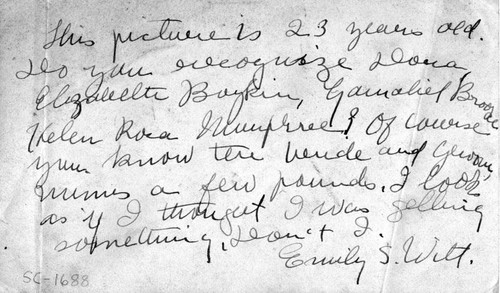 This picture is 23 years old.
Do you recognize Dora,
Elizabeth Boykin, Gamaliel
Helen Rosa Mumphree? Of course
you know the bride and groom,
minus a few pounds. I look
as if I thought I was getting
something, don't I.
Emily S. Witt.
SC-1688